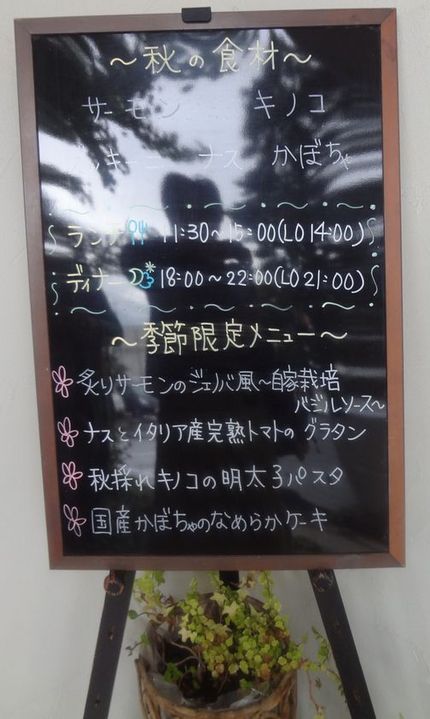 ～秋の食材～
サーモン キノコ
ズッキーニ ナス かぼちゃ
ランチ 11:30～15:00(LO 14:00)
ディナー 18:00～22:00(LO 21:00)
～季節限定メニュー～
炙りサーモンのジェノバ風～自家栽培
バジルソース～
ナスとイタリア産完熟トマトの グラタン
秋採れキノコの明太子パスタ
国産かぼちゃのなめらかケーキ